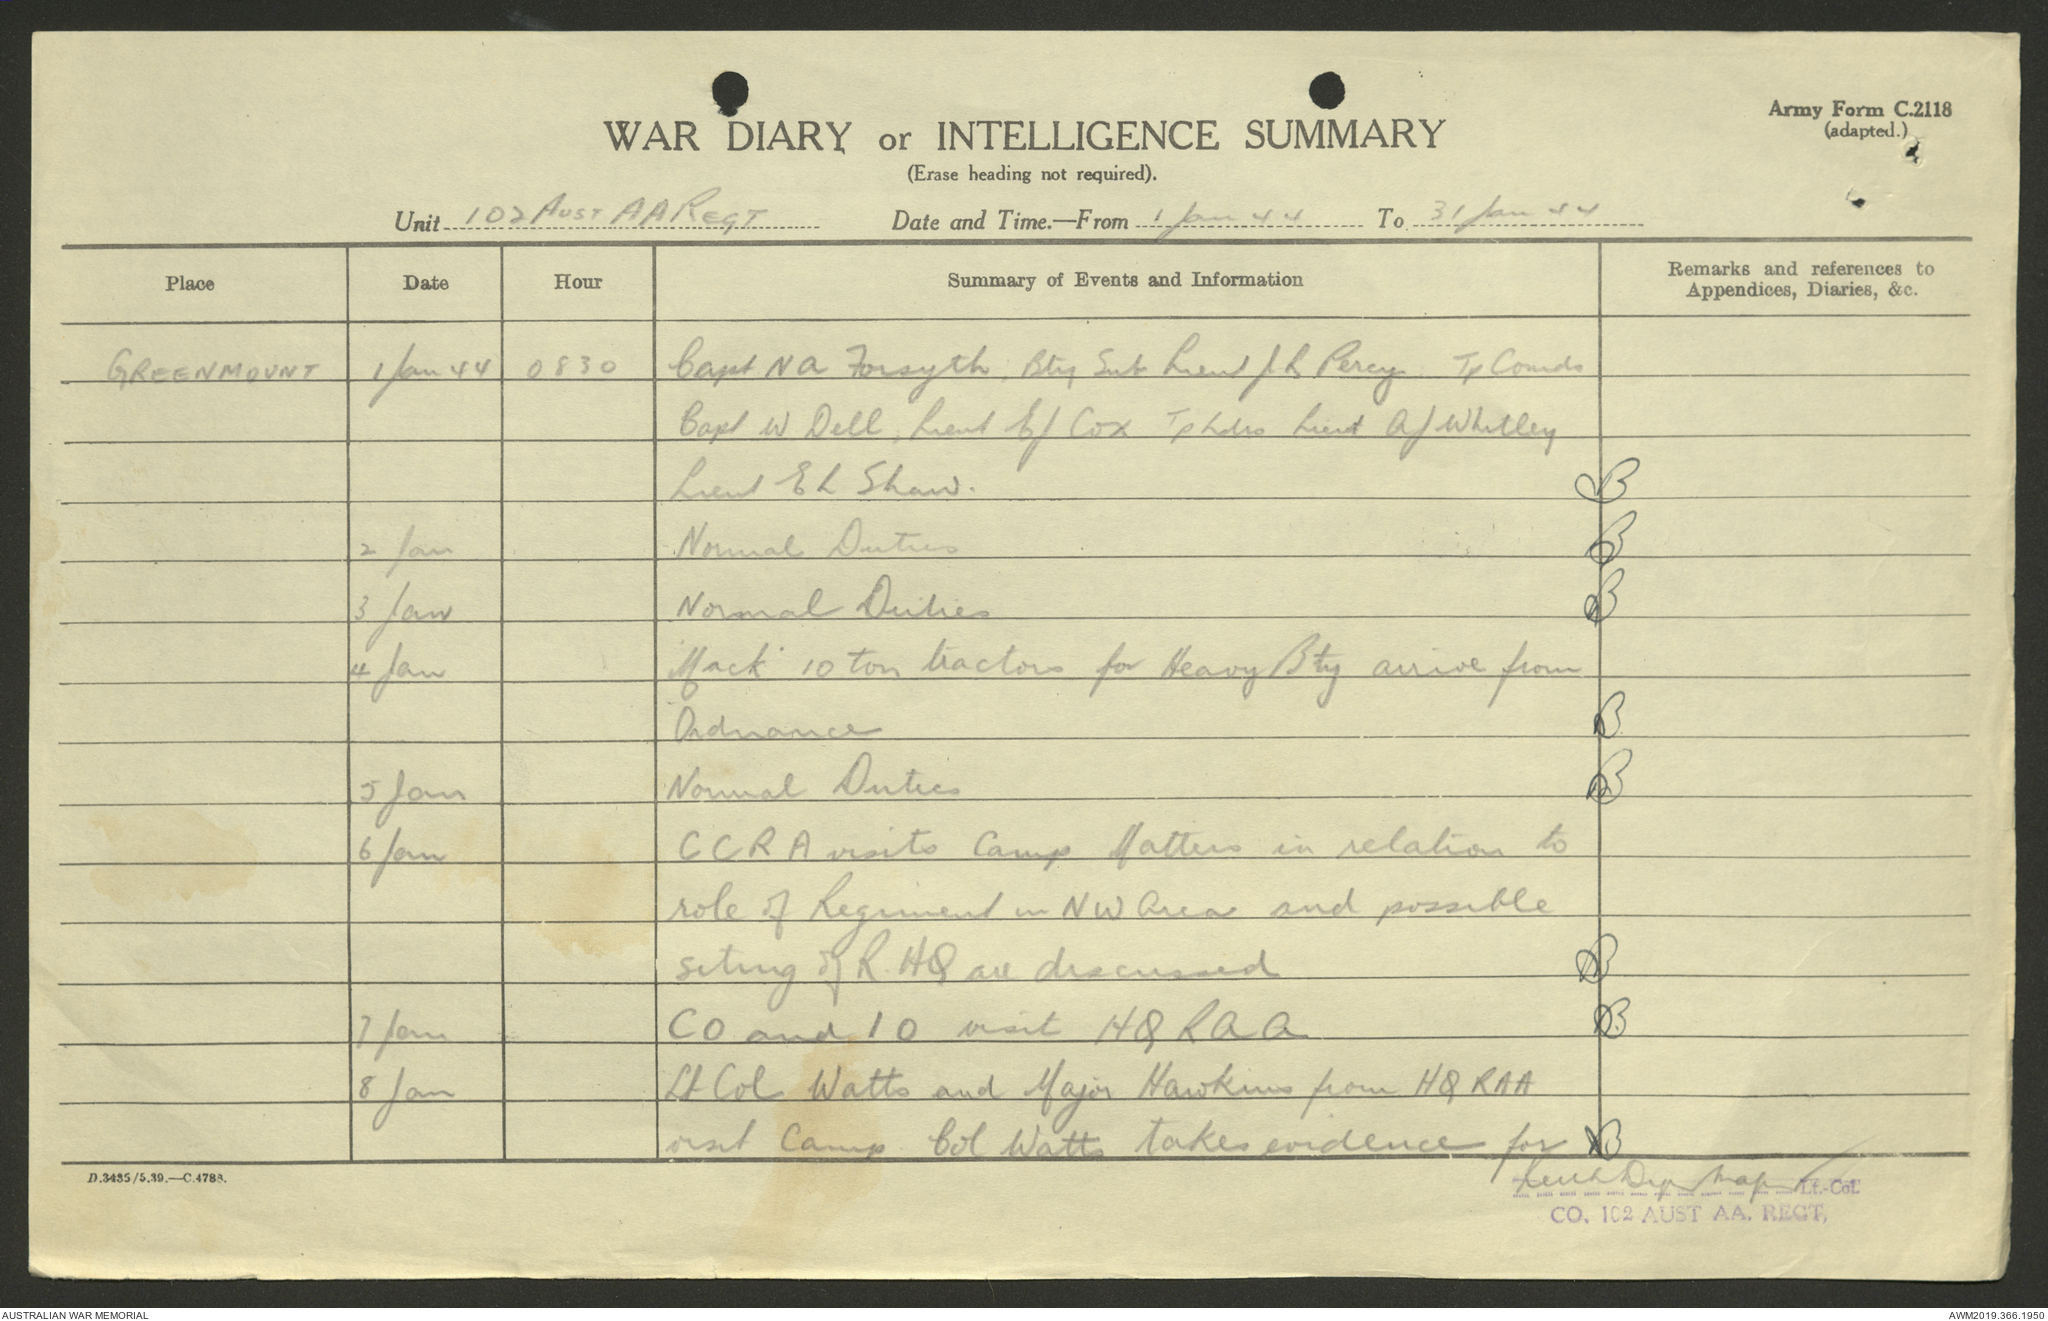 Army Form C.2118
(adapted.)
WAR DIARY or INTELLIGENCE SUMMARY
(Erase heading not required).
Unit 102 AUST AA REGT Date and Time.—From 1 Jan 44 To 31 Jan 44
Place Date Hour Summary of Events and Information Remarks and references to
Appendices, Diaries, &c.
GREENMOUNT 1 Jan 44 0830 Capt N A Forsyth, Bty Sub Lieut J L Percy Tp Comds
Capt W Dell, Lieut E J Cox Tp Ldrs Lieut A J Whitley
Lieut E L Shaw.
2 Jan Normal Duties
3 Jan Normal Duties
4 Jan 'Mack' 10 ton tractors for Heavy Bty arrive from
Ordnance
5 Jan Normal Duties
6 Jan CCRA visits Camp Matters in relation to
role of Regiment in NW Area and possible
siting of R.HQ are discussed
7 Jan CO and IO visit HQ RAA
8 Jan Lt Col Watts and Major Hawkins from HQ RAA
visit Camp. Col Watts takes evidence for
D.3435/5.39.—C.4788.
Lt.-Col.
CO. 102 AUST AA. REGT,
AUSTRALIAN WAR MEMORIAL AWM2019.366.1950